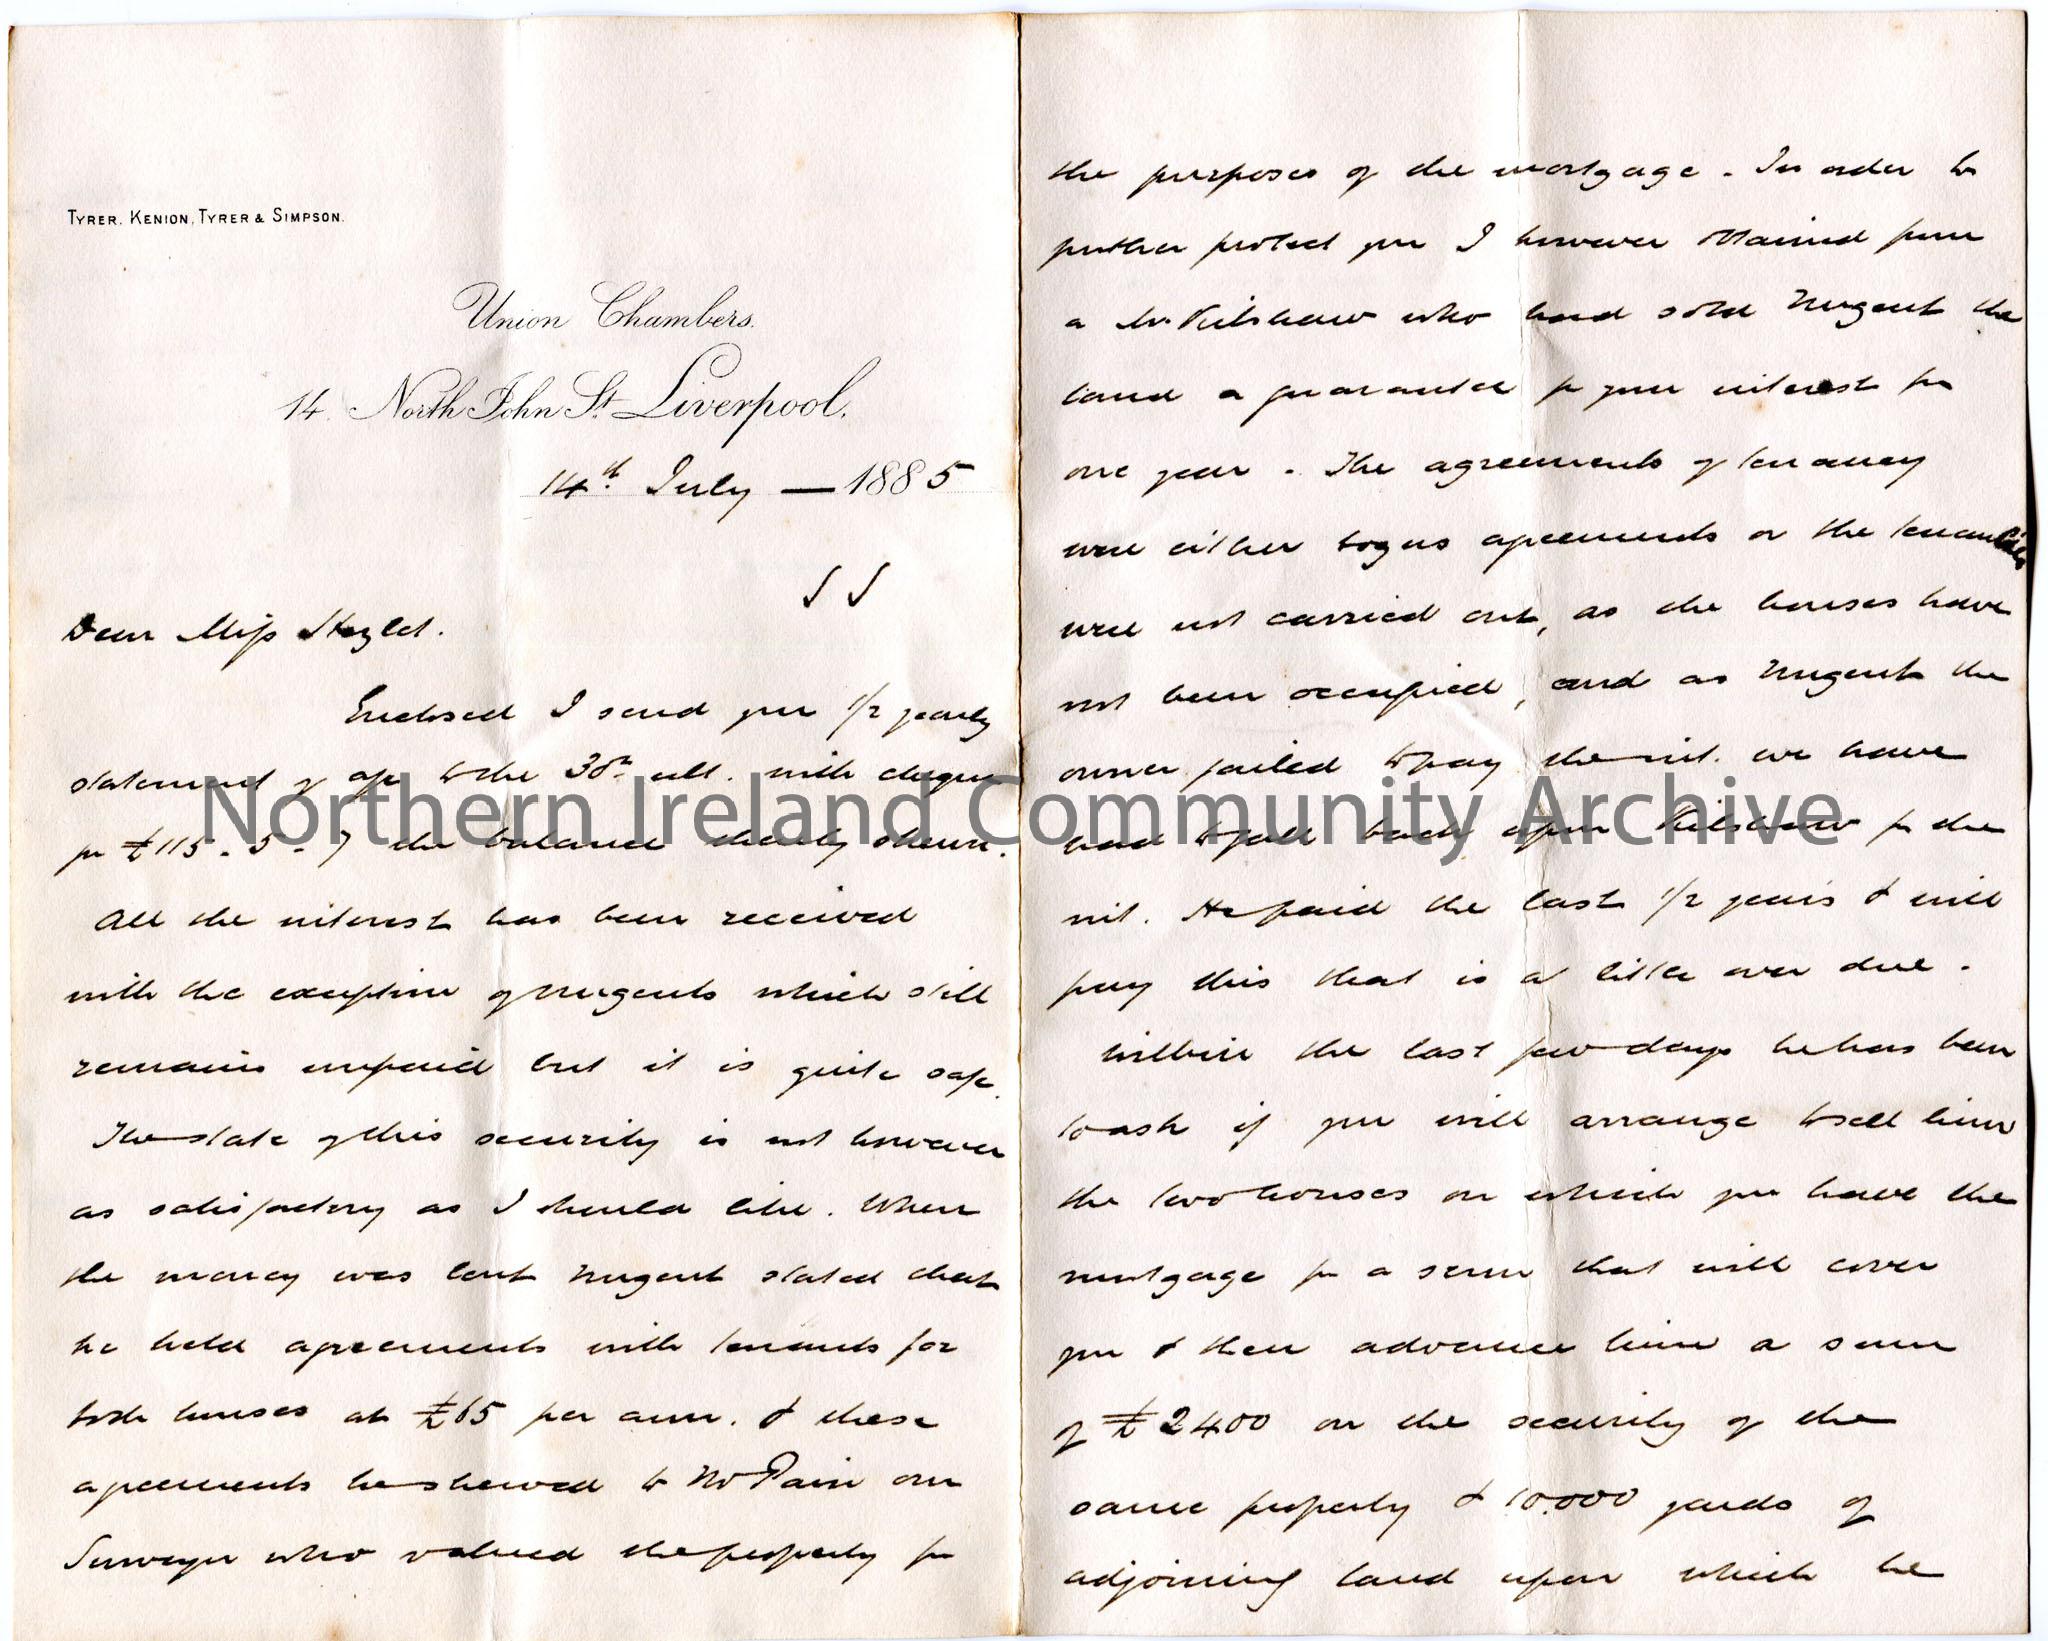 TYRER. KENION, TYRER & SIMPSON.
Union Chambers.
14. North John St. Liverpool.
14th July — 1885
Dear Miss Hezlet.
Enclosed I send you 1/2 yearly
statement of a/c to the 30th ult. with cheque
for £115 - 5 - 7 the balance thereby shewn.
All the interest has been received
with the exception of Nugents which still
remains unpaid but it is quite safe.
The state of this security is not however
as satisfactory as I should like. When
the money was lent Nugent stated that
he held agreements with tenants for
both houses at £65 per ann. & these
agreements he shewed to Mr Pain our
Surveyor who valued the property for
the purposes of the mortgage. In order to
further protect you I however obtained from
a Mr Kilshaw who had sold Nugent the
land a guarantee for your interest for
one year. The agreements of tenancy
were either bogus agreements or the tenancies
were not carried out, as the houses have
not been occupied, and as Nugent the
owner failed to pay the int. we have
had to fall back upon Kilshaw for the
int. He paid the last 1/2 years & will
pay this that is a little over due.
Within the last few days he has been
to ask if you will arrange to sell him
the two houses on which you have the
mortgage for a sum that will cover
you & then advance him a sum
of £2400 on the security of the
same property & 10.000 yards of
adjoining land upon which he
Northern Ireland Community Archive